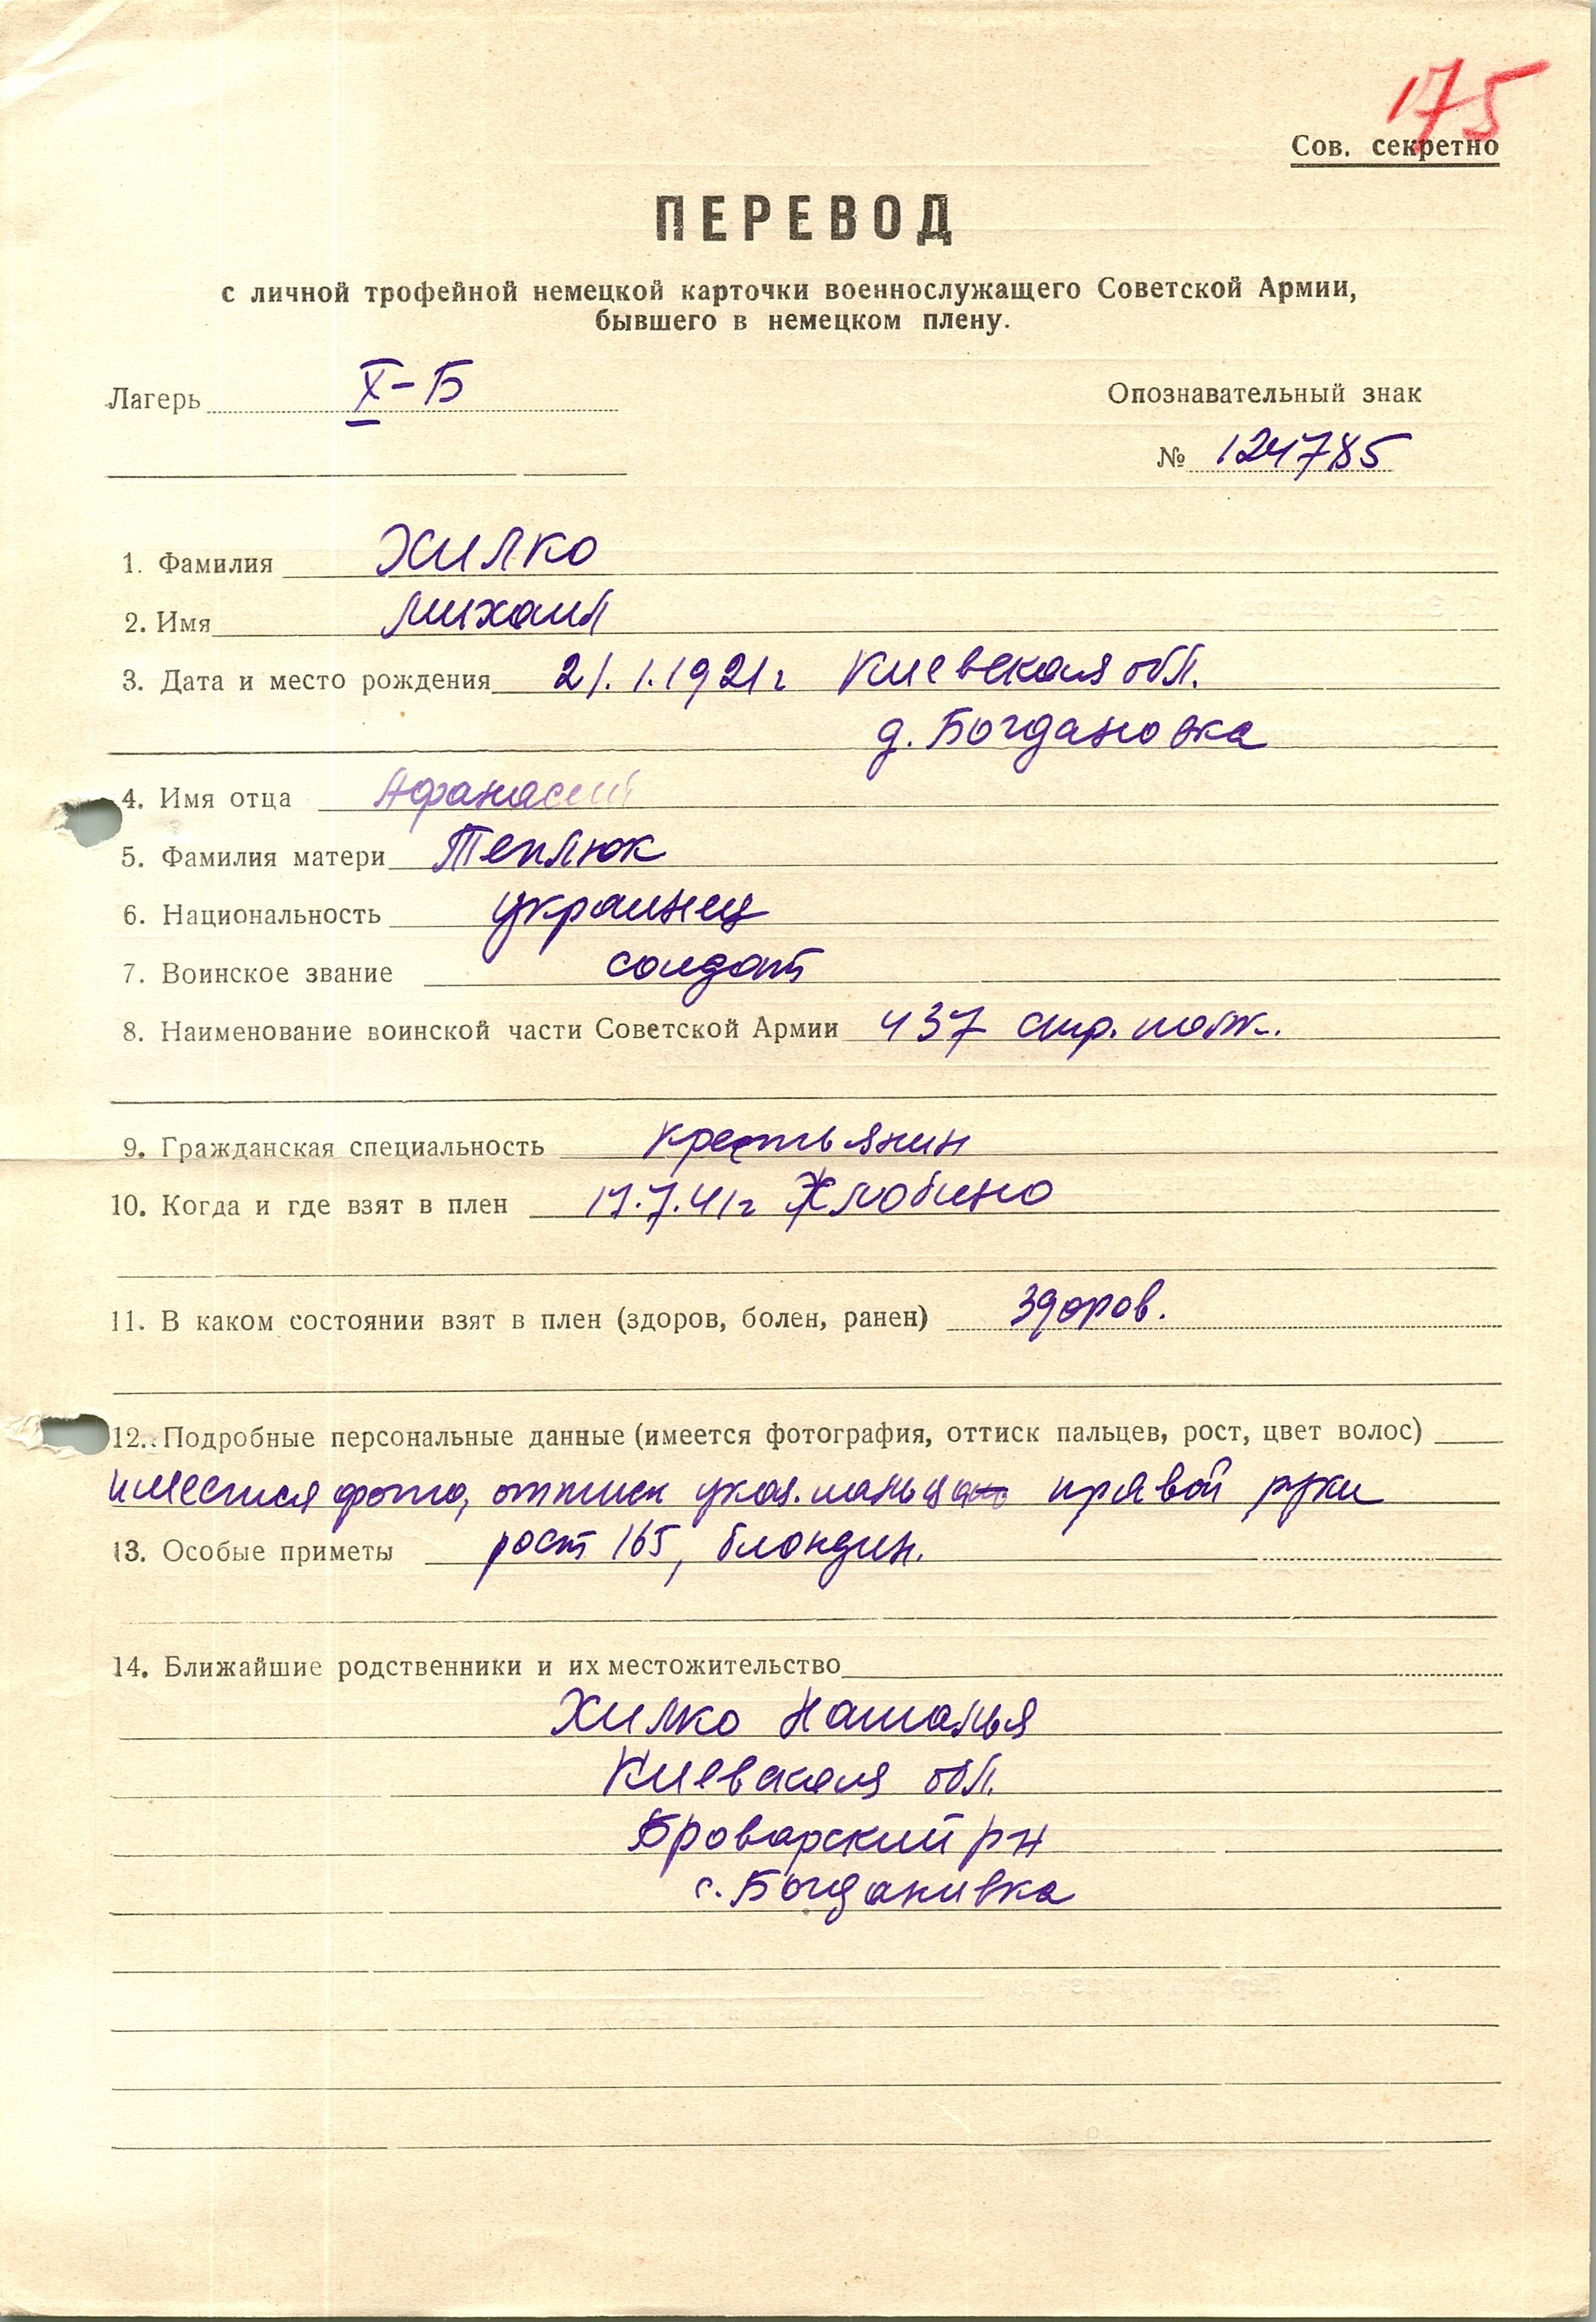 175
Сов. секретно
ПЕРЕВОД
с личной трофейной немецкой карточки военнослужащего Советской Армии,
бывшего в немецком плену.
Лагерь X-Б Опознавательный знак
№ 124785
1. Фамилия Хилко
2. Имя Михаил
3. Дата и место рождения 21.1.1921г Киевская обл.
д. Богдановка
4. Имя отца Афанасий
5. Фамилия матери Теплюк
6. Национальность украинец
7. Воинское звание солдат
8. Наименование воинской части Советской Армии 437 стр. полк.
9. Гражданская специальность крестьянин
10. Когда и где взят в плен 17.7.41г Жлобино
11. В каком состоянии взят в плен (здоров, болен, ранен) здоров.
12. Подробные персональные данные (имеется фотография, оттиск пальцев, рост, цвет волос)
имеется фото, оттиск указ. пальца правой руки
13. Особые приметы рост 165, блондин.
14. Ближайшие родственники и их местожительство
Хилко Наталья
Киевская обл.
Броварский рн
с. Богданивка